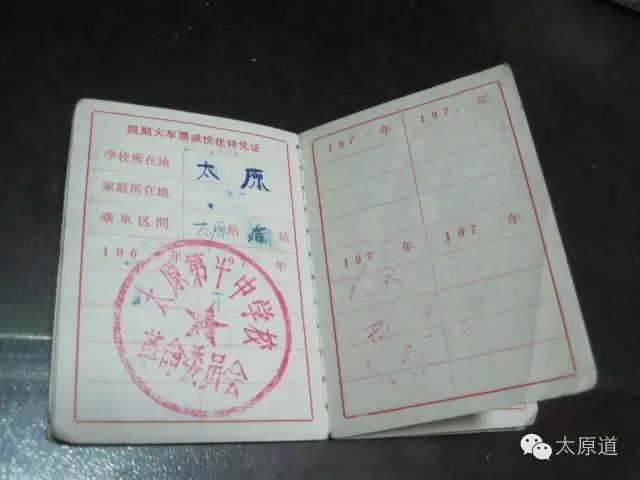 假期火车票减价优待凭证
学校所在地 太原
家庭所在地
乘車区間 太原站 站
196 年 197 年
太原第十中学校
革命委員会
197 年 197 年
197 年 197 年
太原道